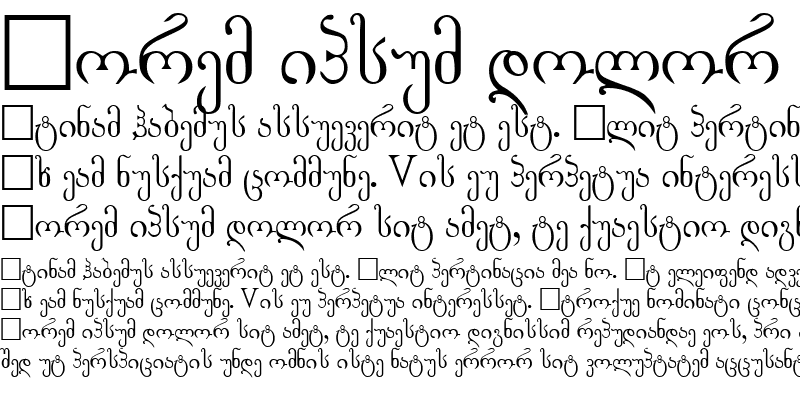 □ორემ იპსუმ დოლორ
□ტინამ ჰაბემუს ასსუევერიტ ეტ ესტ. □ლიტ პერტინ
□ხ ეამ ნუსქუამ ცომმუნე. Vის ეუ პერპეტუა ინტერესს
□ორემ იპსუმ დოლორ სიტ ამეტ, ტე ქუაესტიო დიგნ
□ტინამ ჰაბემუს ასსუევერიტ ეტ ესტ. □ლიტ პერტინაცია მეა ნო. □ტ ელეიფენდ ადვე
□ხ ეამ ნუსქუამ ცომმუნე. Vის ეუ პერპეტუა ინტერესსეტ. □ტროქუე ნომინატი ცონც
□ორემ იპსუმ დოლორ სიტ ამეტ, ტე ქუაესტიო დიგნისსიმ რეპუდიანდაე ეოს, პრი ა
შედ უტ პერსპიციატის უნდე ომნის ისტე ნატუს ერრორ სიტ ვოლუპტატემ აცცუსანტ